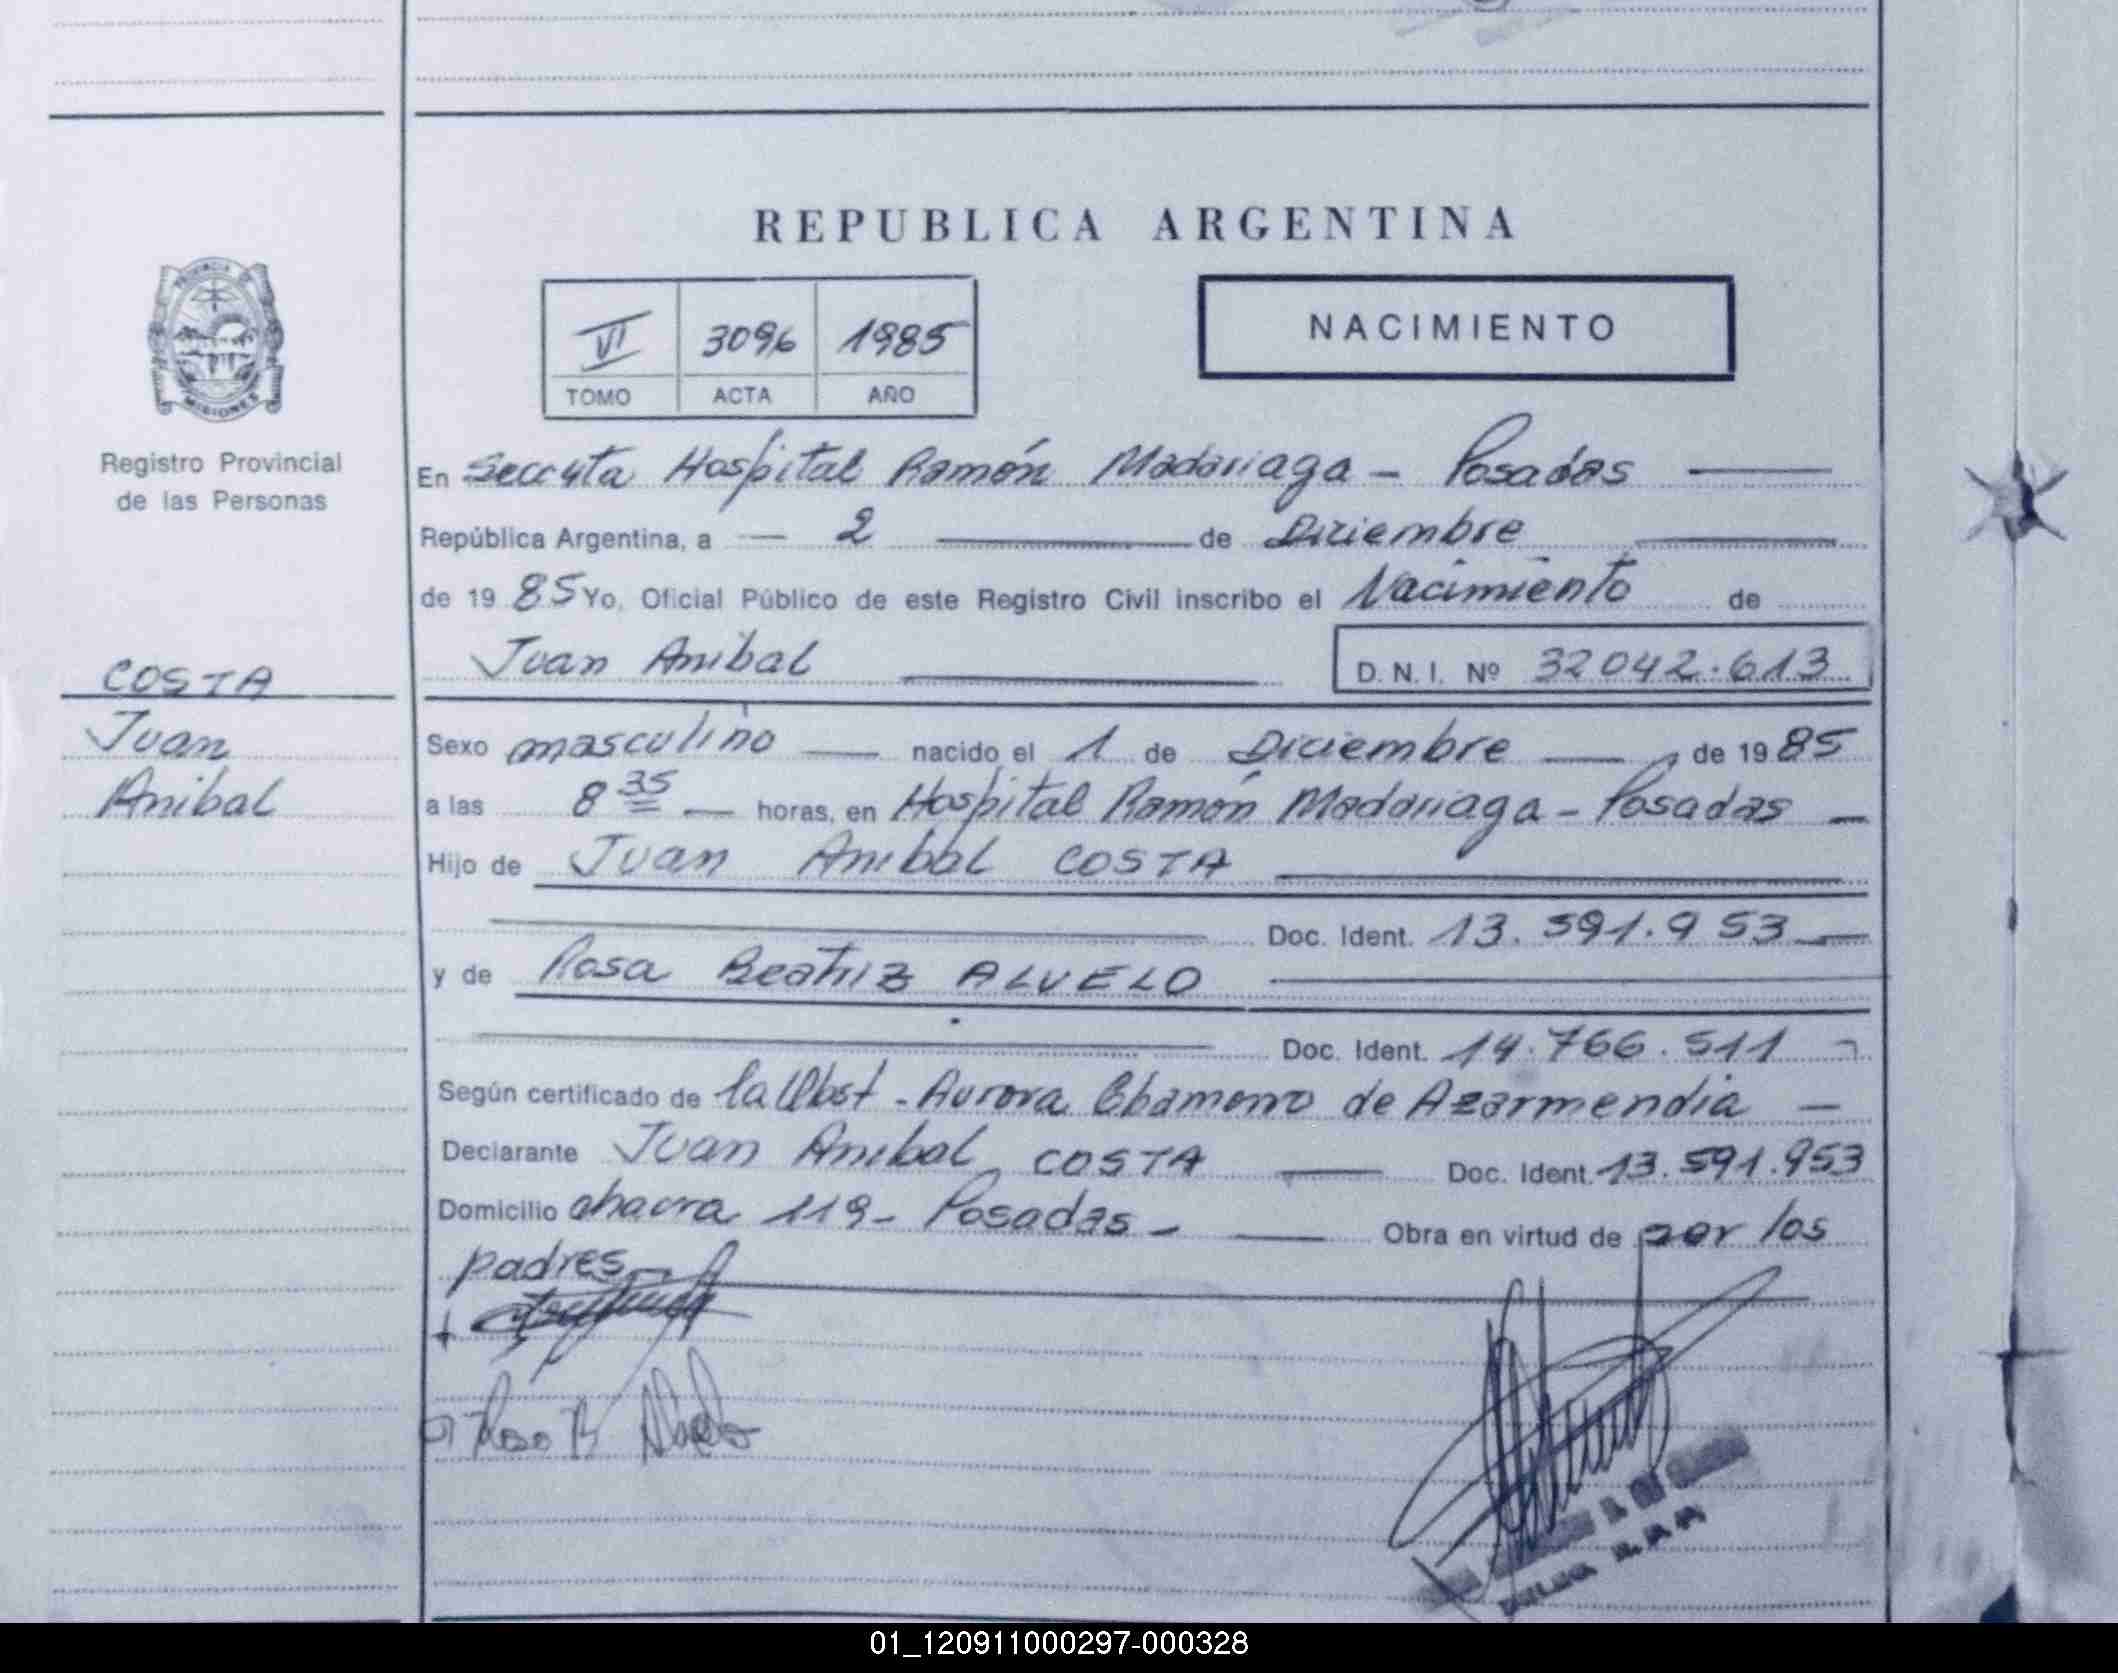 REPUBLICA ARGENTINA
PROVINCIA DE
MISIONES
Registro Provincial
de las Personas
VI 3096 1985
TOMO ACTA AÑO
NACIMIENTO
En Secc 4ta Hospital Ramón Madariaga - Posadas
República Argentina, a 2 de Diciembre
de 1985 Yo, Oficial Público de este Registro Civil inscribo el Nacimiento de
Juan Anibal D.N.I. Nº 32042.613
COSTA
Juan
Anibal
Sexo masculino nacido el 1 de Diciembre de 1985
a las 8 35 horas, en Hospital Ramón Madariaga - Posadas
Hijo de Juan Anibal COSTA
Doc. Ident. 13.591.953
y de Rosa Beatriz ALVELO
Doc. Ident. 14.766.511
Según certificado de la Obst - Aurora Chamorro de Azarmendia
Declarante Juan Anibal COSTA Doc. Ident. 13.591.953
Domicilio chacra 119 - Posadas - Obra en virtud de ser los
padres
Rosa B Alvelo
01_120911000297-000328